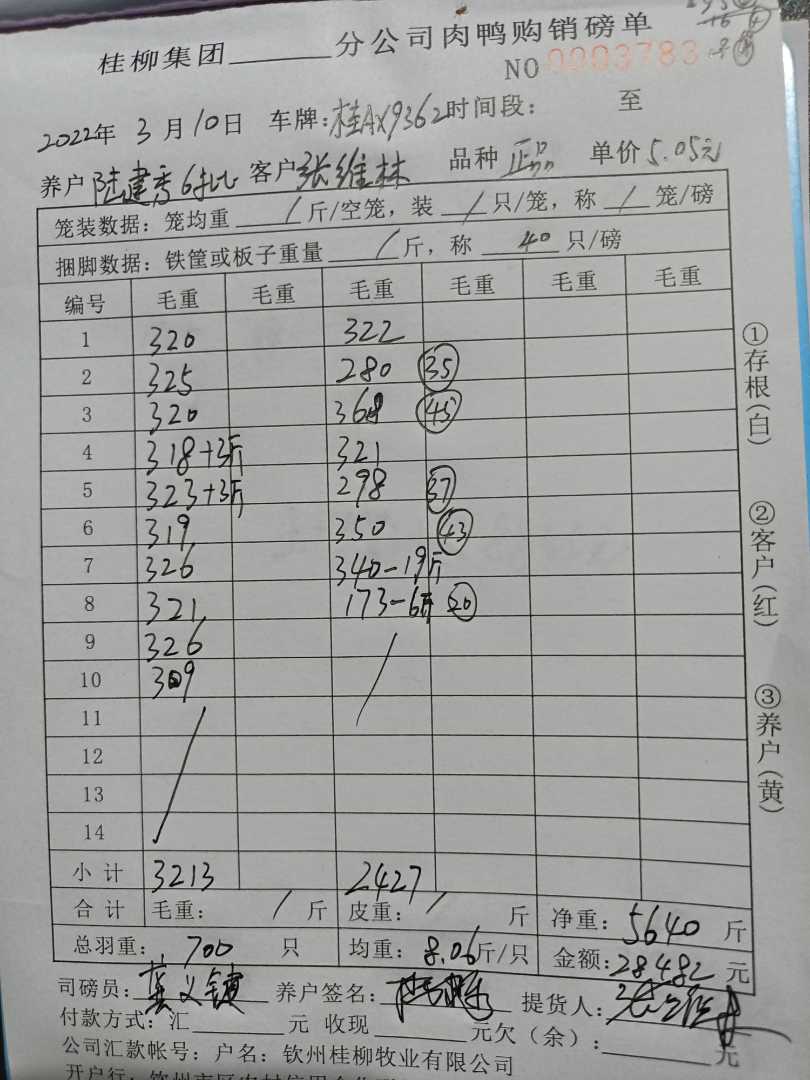 桂柳集团______分公司肉鸭购销磅单
NO 0003783
2022年 3月10日 车牌:桂AX9362 时间段: 至
养户 陆建秀6批 客户 张维林 品种 正品 单价 5.05元
笼装数据:笼均重 / 斤/空笼,装 / 只/笼,称 / 笼/磅
捆脚数据:铁筐或板子重量 / 斤,称 40 只/磅
编号 毛重 毛重 毛重 毛重 毛重 毛重
1 320 322
2 325 280 35
3 320 368 45
4 318+3斤 321
5 323+3斤 298 37
6 319 350 43
7 326 340-19斤
8 321 173-6斤 20
9 326
10 309
11
12
13
14
小计 3213 2427
合计 毛重: / 斤 皮重: / 斤 净重: 5640 斤
总羽重: 700 只 均重: 8.06斤/只 金额: 28482 元
司磅员: 养户签名: 提货人:
付款方式:汇______元 收现______元欠(余):______元
公司汇款帐号:户名:钦州桂柳牧业有限公司
开户行:钦州市区农村信用合作
①存根(白)
②客户(红)
③养户(黄)